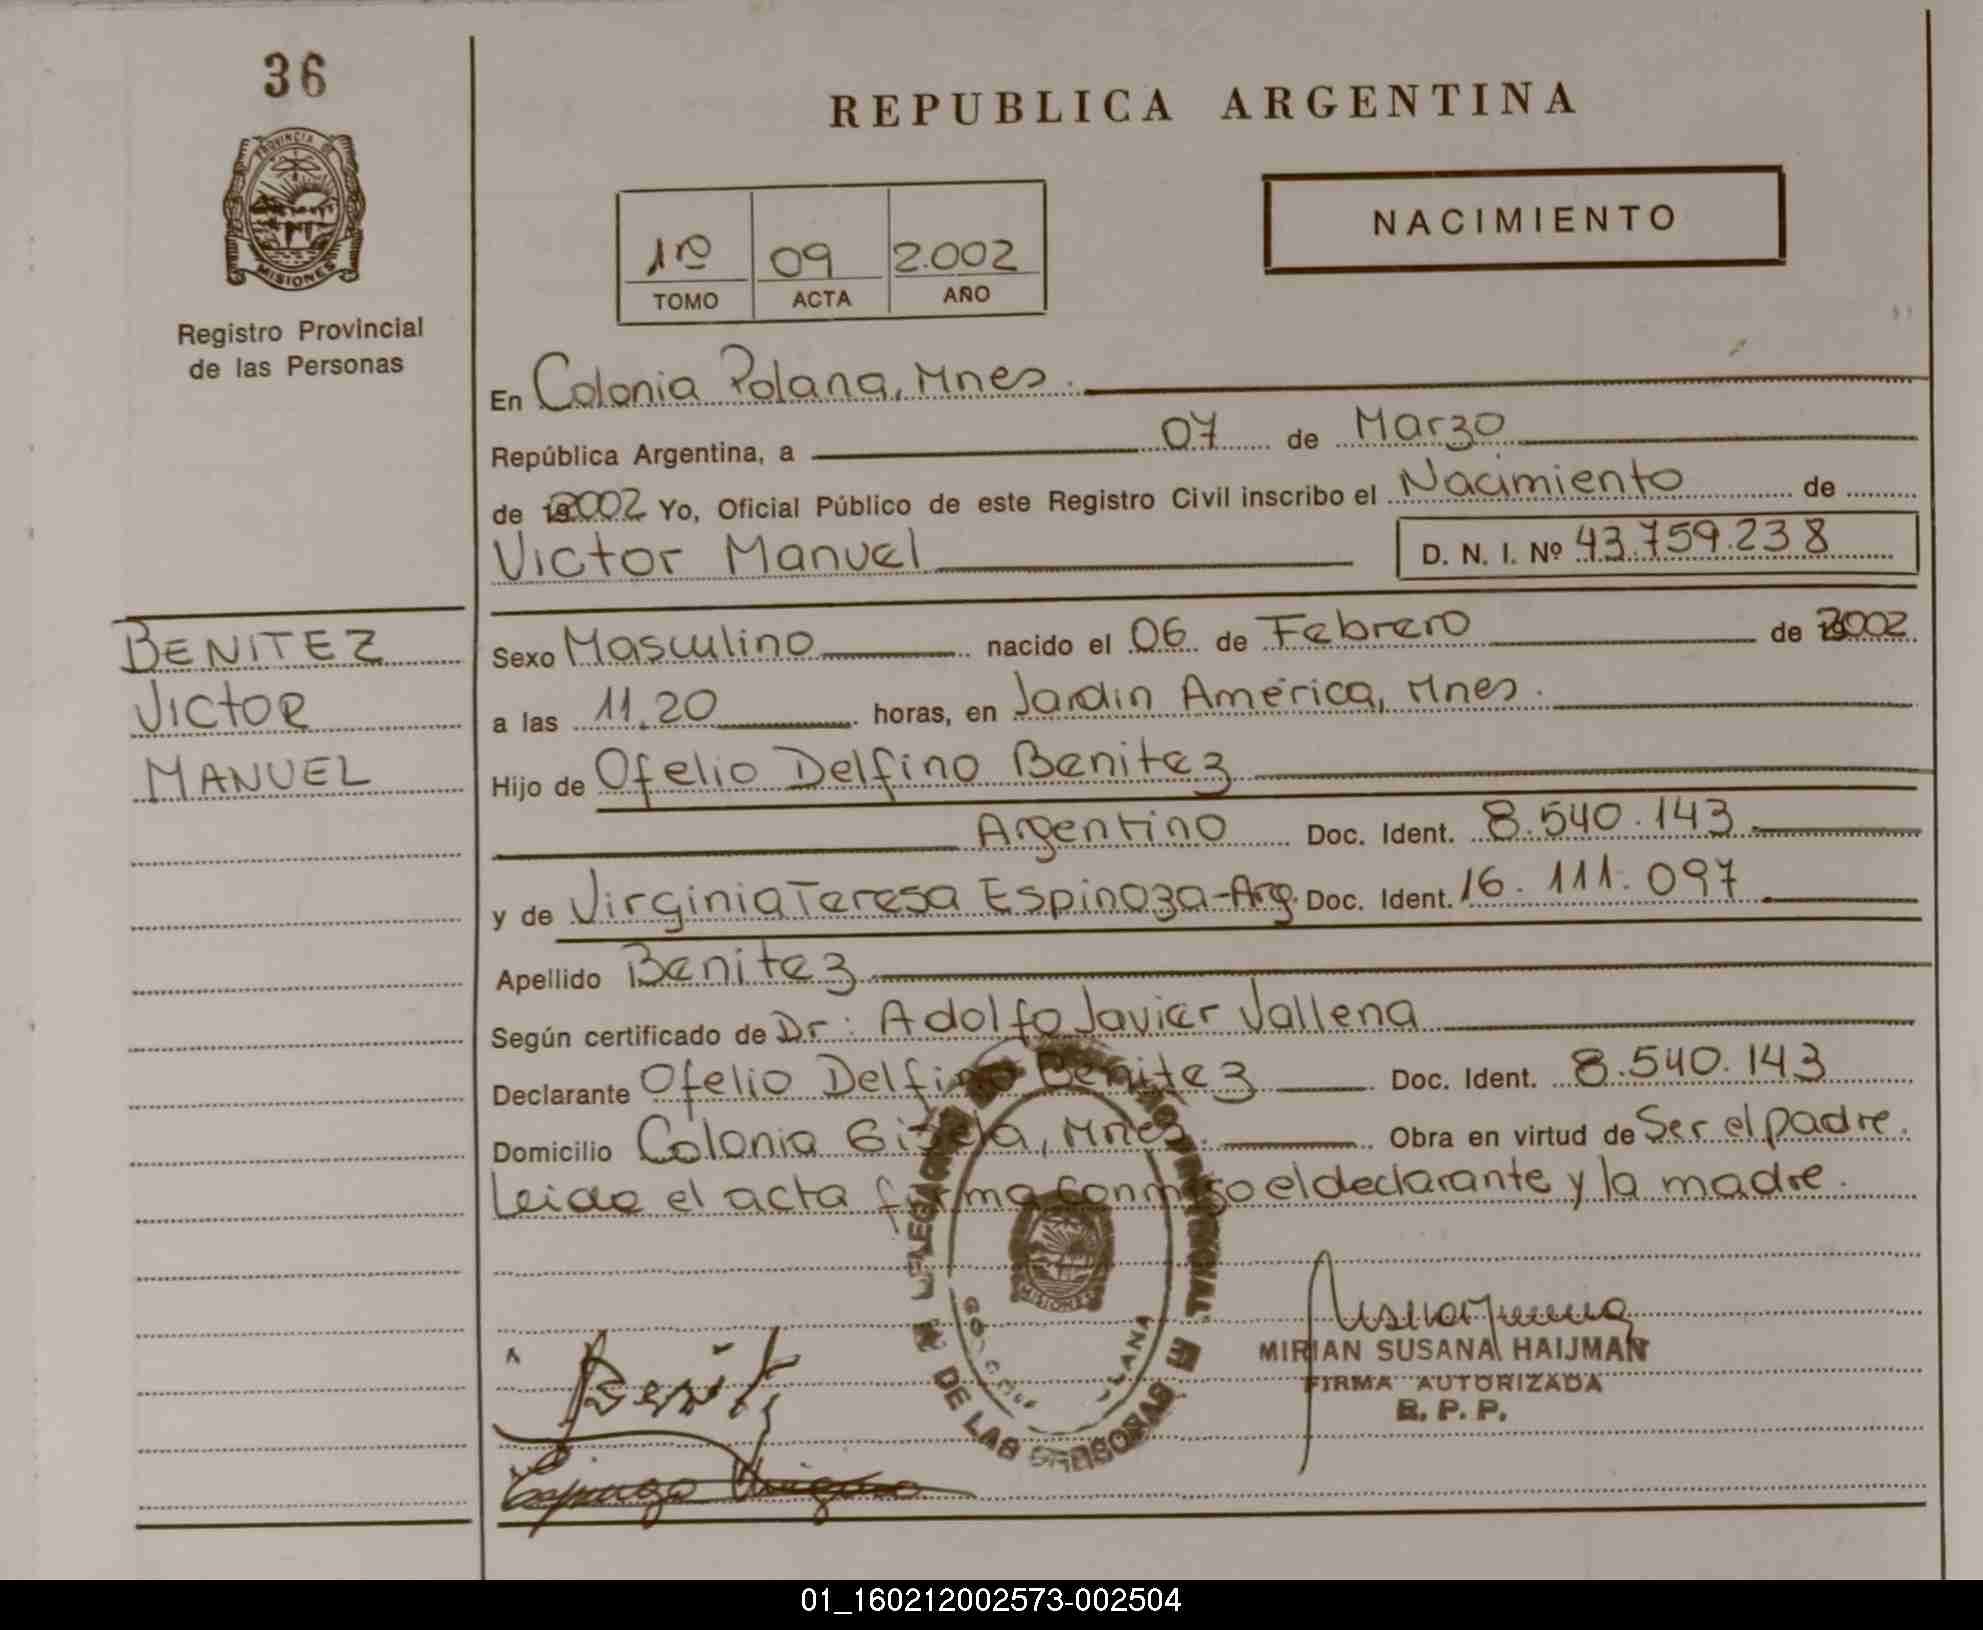 36
PROVINCIA DE
MISIONES
Registro Provincial
de las Personas
REPUBLICA ARGENTINA
1º 09 2.002
TOMO ACTA AÑO
NACIMIENTO
En Colonia Polana, Mnes.
República Argentina, a 07 de Marzo
de 2002 Yo, Oficial Público de este Registro Civil inscribo el Nacimiento de
Victor Manuel D. N. I. Nº 43.759.238
BENITEZ
VICTOR
MANUEL
Sexo Masculino nacido el 06 de Febrero de 2002
a las 11.20 horas, en Jardin América, Mnes.
Hijo de Ofelio Delfino Benitez
Argentino Doc. Ident. 8.540.143
y de Virginia Teresa Espinoza-Arg. Doc. Ident. 16.111.097
Apellido Benitez
Según certificado de Dr: Adolfo Javier Vallena
Declarante Ofelio Delfino Benitez Doc. Ident. 8.540.143
Domicilio Colonia Gisela, Mnes. Obra en virtud de Ser el padre.
Leido el acta firma conmigo el declarante y la madre.
DE LAS PERSONAS
MISIONES
MIRIAN SUSANA HAIJMAN
FIRMA AUTORIZADA
R. P. P.
Benitz
01_160212002573-002504